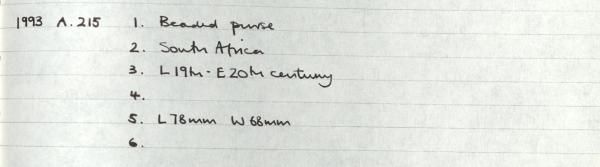 1993 A.215 1. Beaded purse
2. South Africa
3. L 19th - E 20th century
4.
5. L 78mm W 68mm
6.